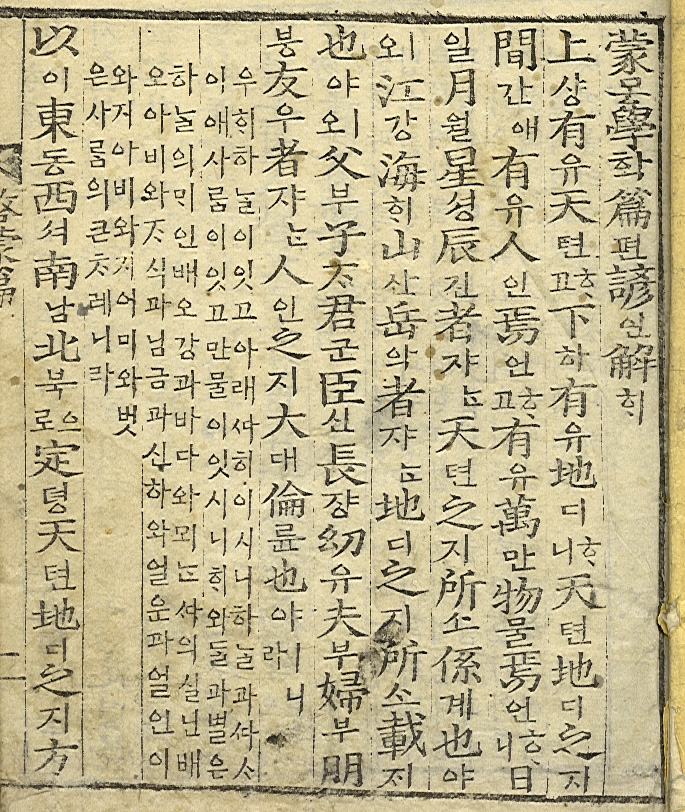 蒙몽學학篇편諺언解ᄒᆡ
上샹有유天텬ᄒᆞ고下하有유地디ᄒᆞ니天텬地디之지
間간애有유人인焉언ᄒᆞ고有유萬만物믈焉언ᄒᆞ니日
일月월星셩辰진者쟈ᄂᆞᆫ天텬之지所소係계也야
오ㅣ江강海ᄒᆡ山산岳악者쟈ᄂᆞᆫ地디之지所소載ᄌᆡ
也야오ㅣ父부子ᄌᆞ君군臣신長쟝幼유夫부婦부朋
붕友우者쟈ᄂᆞᆫ人인之지大대倫륜也야ㅣ니라
우희하ᄂᆞᆯ이잇고아래ᄯᅡ히이시니하ᄂᆞᆯ과ᄯᅡᄉ
이애사ᄅᆞᆷ이잇고만물이잇시니ᄒᆡ와ᄃᆞᆯ과별은
하ᄂᆞᆯ의ᄆᆡ인배오강과바다와뫼ᄂᆞᆫᄯᅡ의실닌배
오아비와ᄌᆞ식과님금과신하와얼운과얼인이
와지아비와지어미와벗
은사ᄅᆞᆷ의큰ᄎᆞ례니라
以이東동西셔南남北북으로定뎡天텬地디之지方